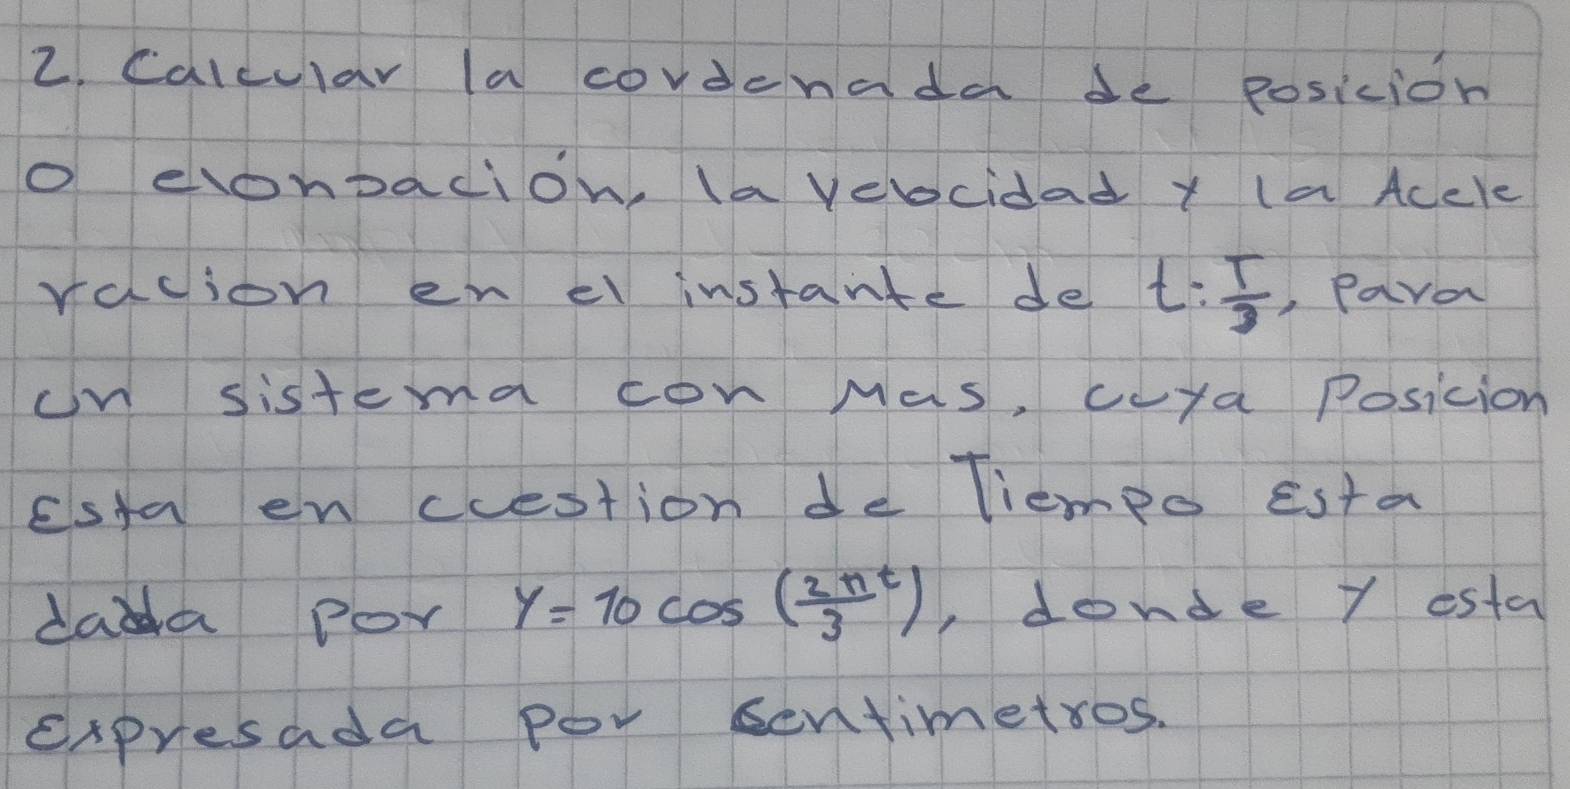 2. Calcular la cordenada de posición
o elongación, la velocidad y la Acele
racion en el instante de t: T/3, Para
un sistema con Mas, cuya Posicion
Esta en cuestion de Tiempo Esta
dada por Y = 10 cos (2π/3 t), donde y esta
Expresada por Sentimetros.